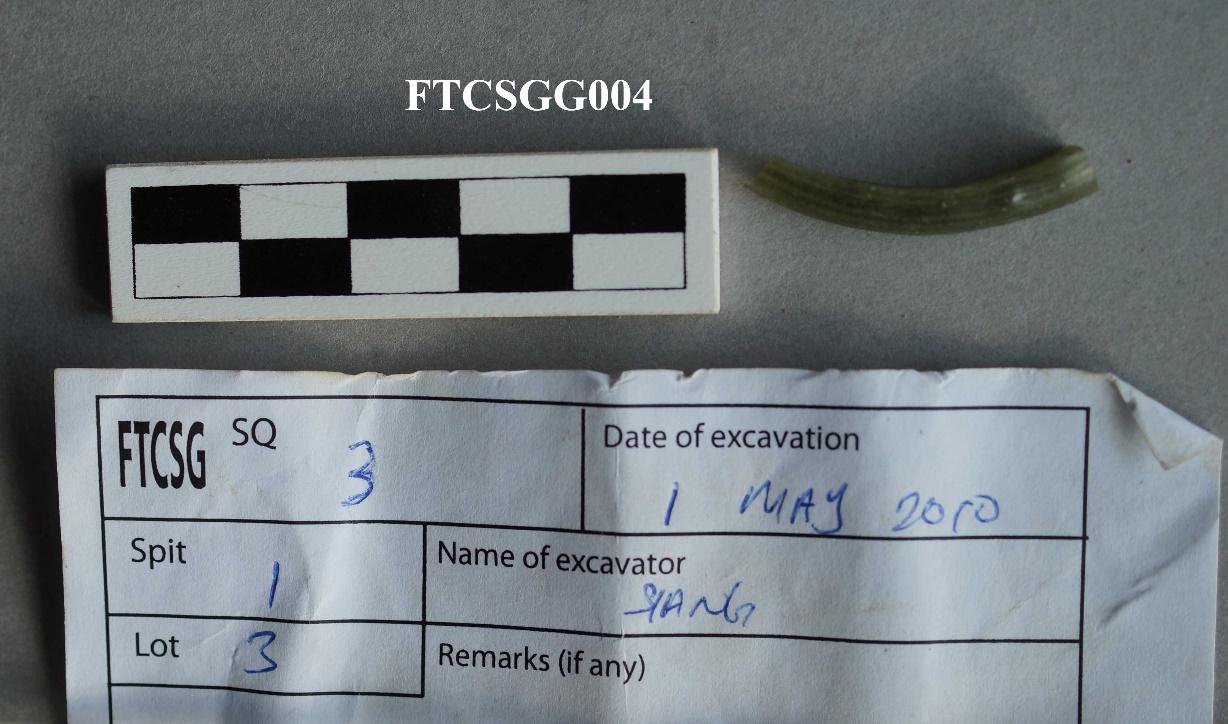 FTCSGG004
FTCSG SQ 3
Date of excavation
1 MAY 2010
Spit 1
Name of excavator
YANG
Lot 3
Remarks (if any)